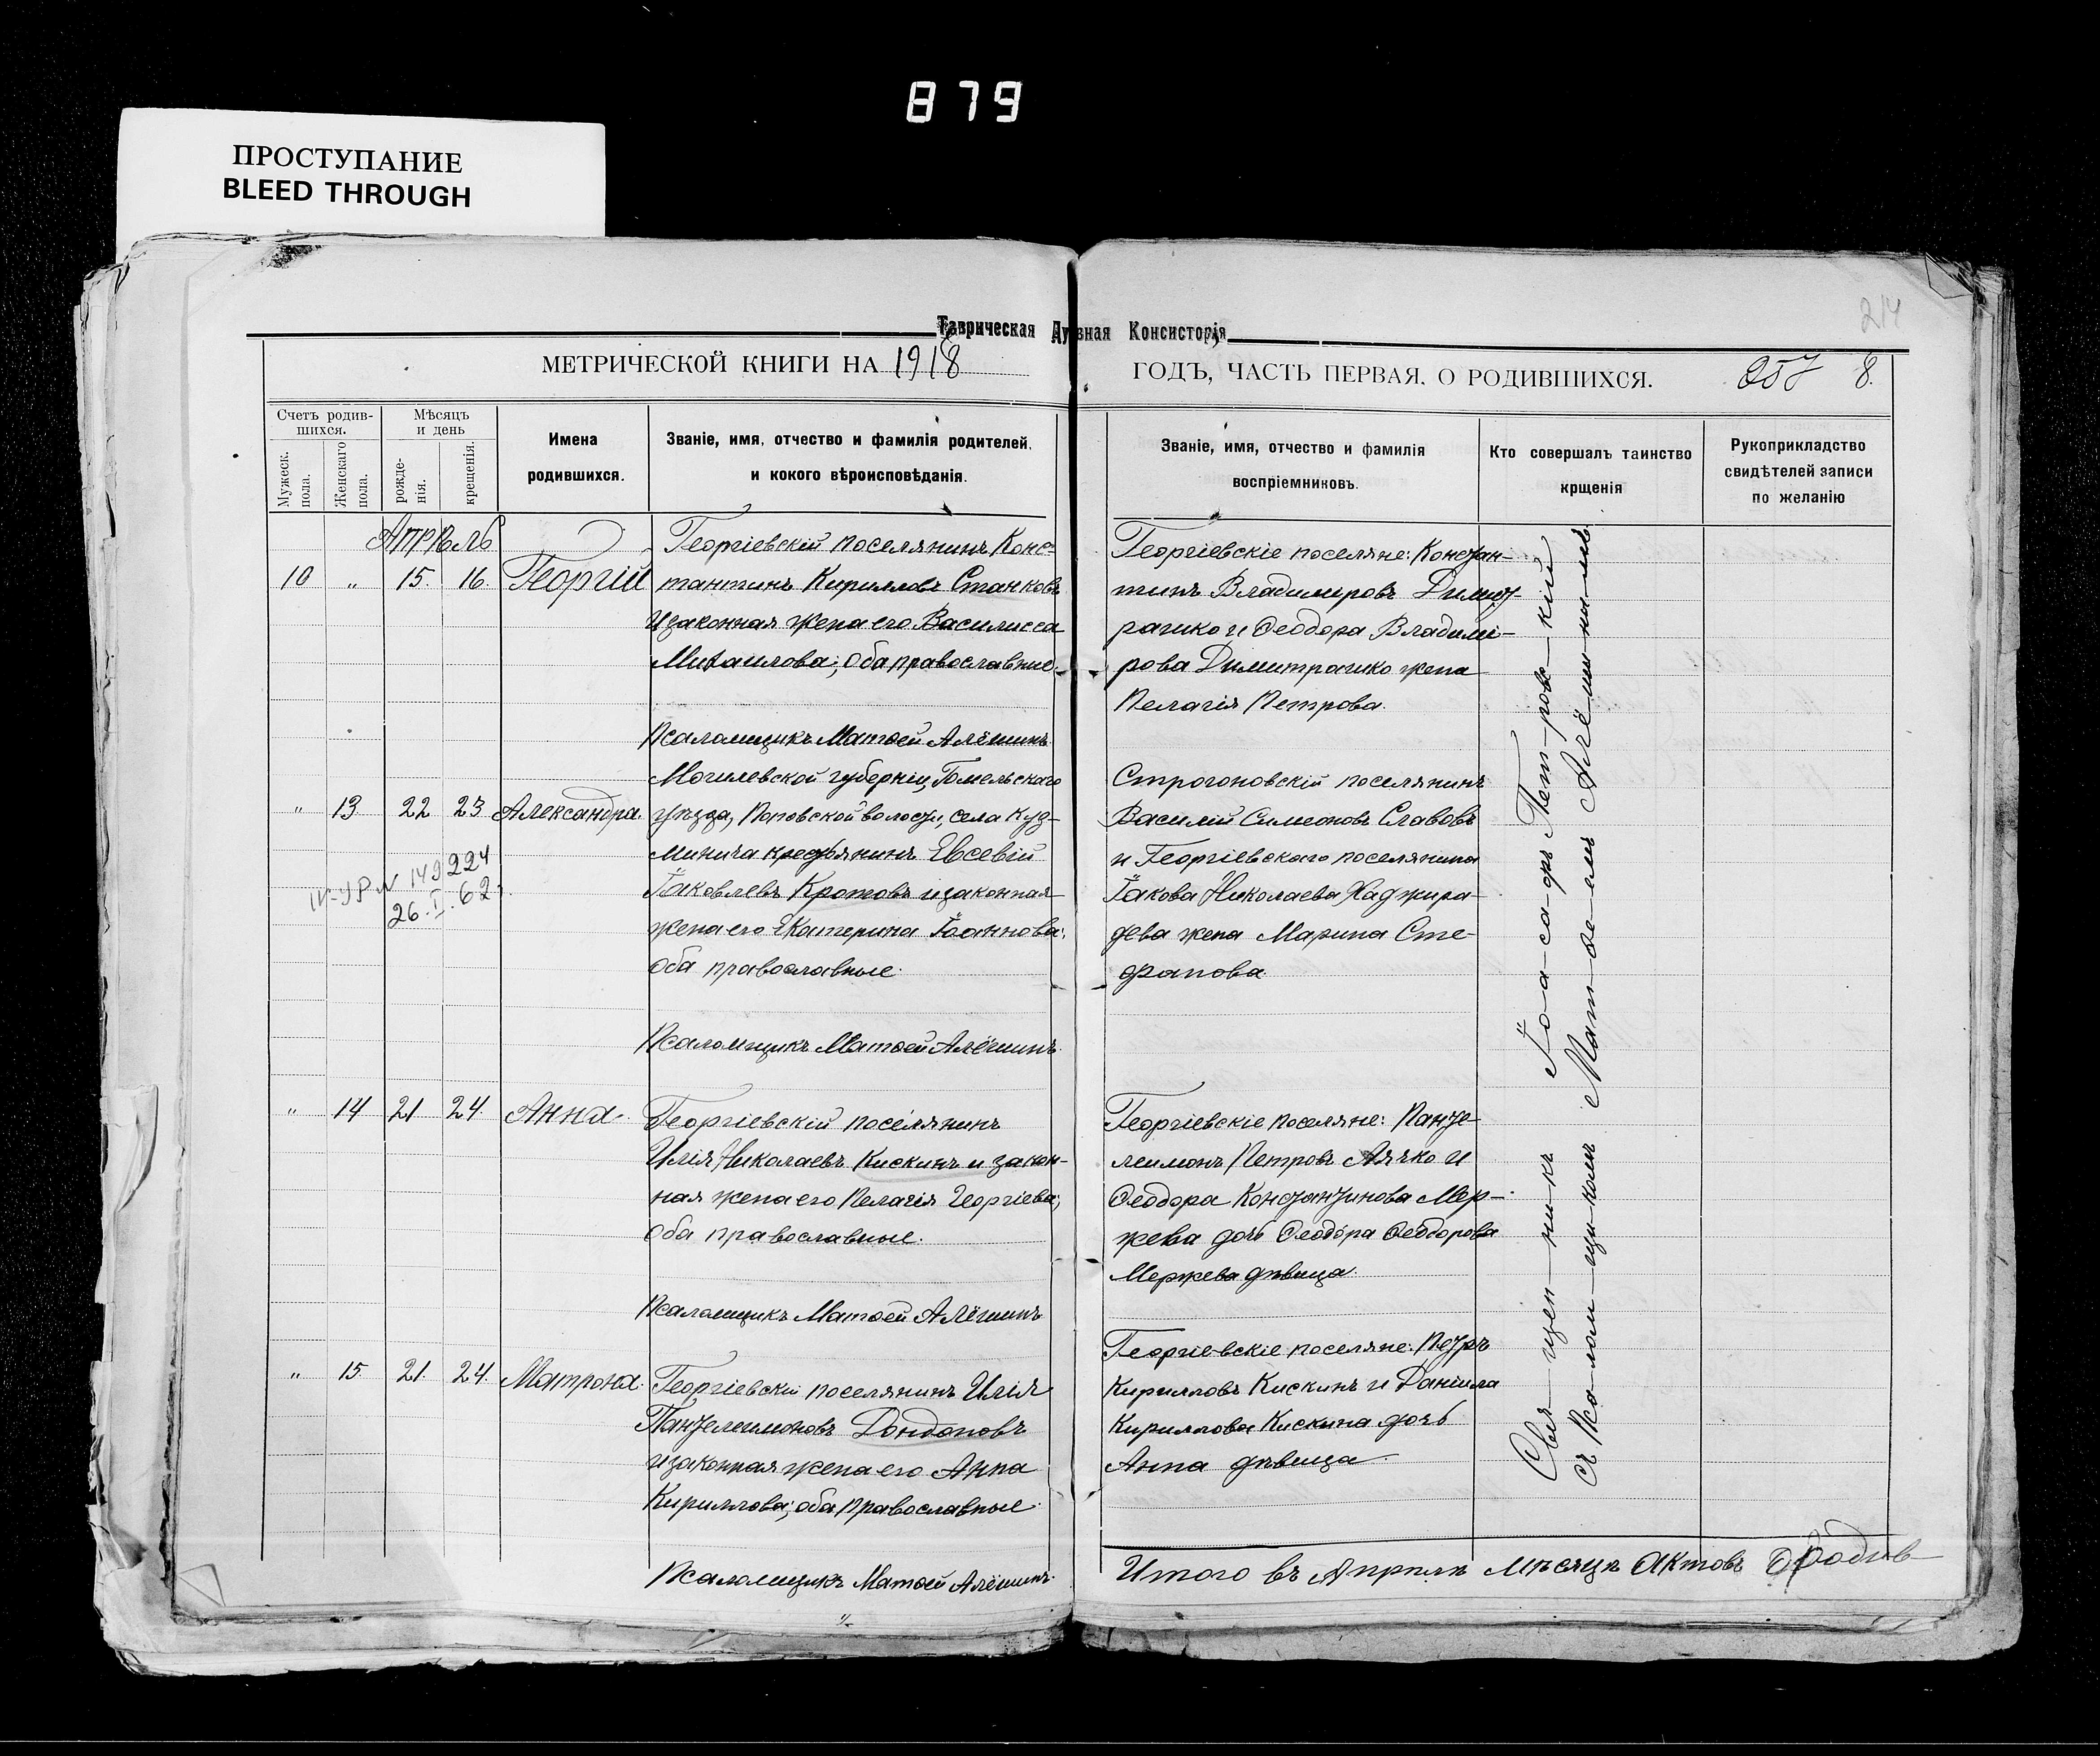 879
ПРОСТУПАНИЕ
BLEED THROUGH
214
Таврическая Духовная Консисторія
МЕТРИЧЕСКОЙ КНИГИ НА 1918
ГОДЪ, ЧАСТЬ ПЕРВАЯ, О РОДИВШИХСЯ.
8.
Счетъ родив-
шихся.
Мужеск.
пола.
Женскаго
пола.
Мѣсяцъ
и день
рожде-
нія.
крещенія.
Имена
родившихся.
Званіе, имя, отчество и фамилія родителей,
и кокого вѣроисповѣданія.
Званіе, имя, отчество и фамилія
воспріемниковъ.
Кто совершалъ таинство
крщенія
Рукоприкладство
свидѣтелей записи
по желанію
Апрѣль
10 " 15. 16. Георгій
Георгіевскій поселянинъ Конс-
тантинъ Кирилловъ Станковъ
и законная жена его Василисса
Михаилова; оба православные.
Псаломщикъ Матѳей Алёшинъ
Георгіевскіе поселяне: Констан-
тинъ Владимировъ Димит
рашко и Ѳеодора Владими-
рова Димитрашко жена
Пелагія Петрова.
" 13 22 23 Александра.
Могилевской губерніи, Гомельскаго
уѣзда, Поповской волости, села Куз-
минича крестьянинъ Евсевій
Іаковлевъ Кротовъ и законная
жена его Екатерина Іоаннова;
оба православные.
Псаломщикъ Матѳей Алёшинъ.
149224
26.I.62 г.
Строгоновскій поселянинъ
Василій Симеоновъ Славовъ
и Георгіевскаго поселянина
Іакова Николаева Хаджира-
дева жена Марина Сте-
фанова.
" 14 21 24. Анна.
Георгіевскій поселянинъ
Илія Николаевъ Кискинъ и закон-
ная жена его Пелагія Георгіева;
оба православные.
Псаломщикъ Матѳей Алёшинъ
Георгіевскіе поселяне: Панте-
леимонъ Петровъ Лячко и
Ѳеодора Константинова Мер-
жева дочь Ѳеодора Ѳеодорова
Мержева дѣвица.
" 15. 21. 24. Матрона.
Георгіевскій поселянинъ Илія
Пантелеимоновъ Дондоновъ
и законная жена его Анна
Кириллова; оба православные.
Псаломщикъ Матѳей Алёшинъ.
Георгіевскіе поселяне: Петръ
Кирилловъ Кискинъ и Даніила
Кириллова Кискина дочь
Анна дѣвица.
Свя-щен-ни-къ Іо-а-са-фъ Пет-ров-скій
съ Пса-лом-щи-комъ Мат-ѳе-емъ Алё-ши-нымъ
Итого въ Апрѣлѣ мѣсяцѣ актовъ о родив-